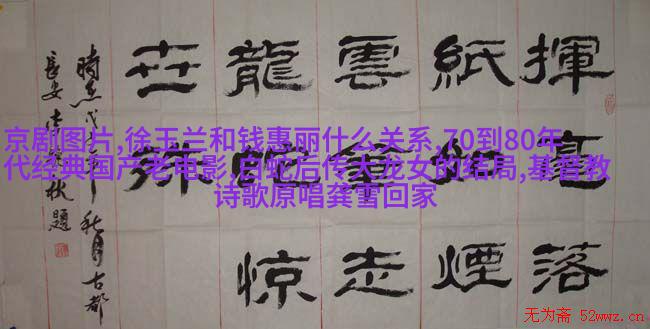 揮毫落
紙如煙
雲走
龍惊
世殊
秋月古都
長安題
京剧图片,徐玉兰和钱惠丽什么关系,70到80年
代经典国产老电影,白蛇后传大龙女的结局,基督教
诗歌原唱龚雪回家
无为斋 52wwz.cn